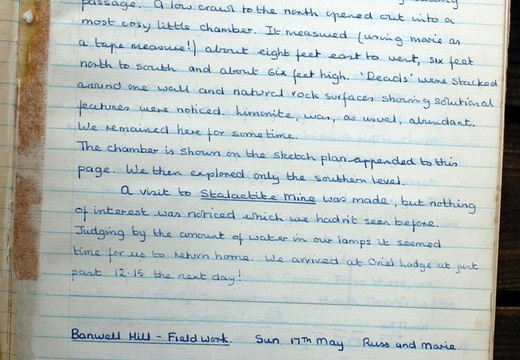 passage. A low crawl to the north opened out into a
most cosy little chamber. It measured (using marie as
a tape measure!) about eight feet east to west, six feet
north to south and about six feet high. 'Deads' were stacked
around one wall and natural rock surfaces showing solutional
features were noticed. Limonite, was, as usual, abundant.
We remained here for sometime.
The chamber is shown on the sketch plan appended to this
page. We then explored only the southern level.
A visit to Stalactite Mine was made, but nothing
of interest was noticed which we hadn't seen before.
Judging by the amount of water in our lamps it seemed
time for us to return home. We arrived at Oriel Lodge at just
past 12.15 the next day!
Banwell Hill - Field Work. Sun 17th May Russ and Marie.